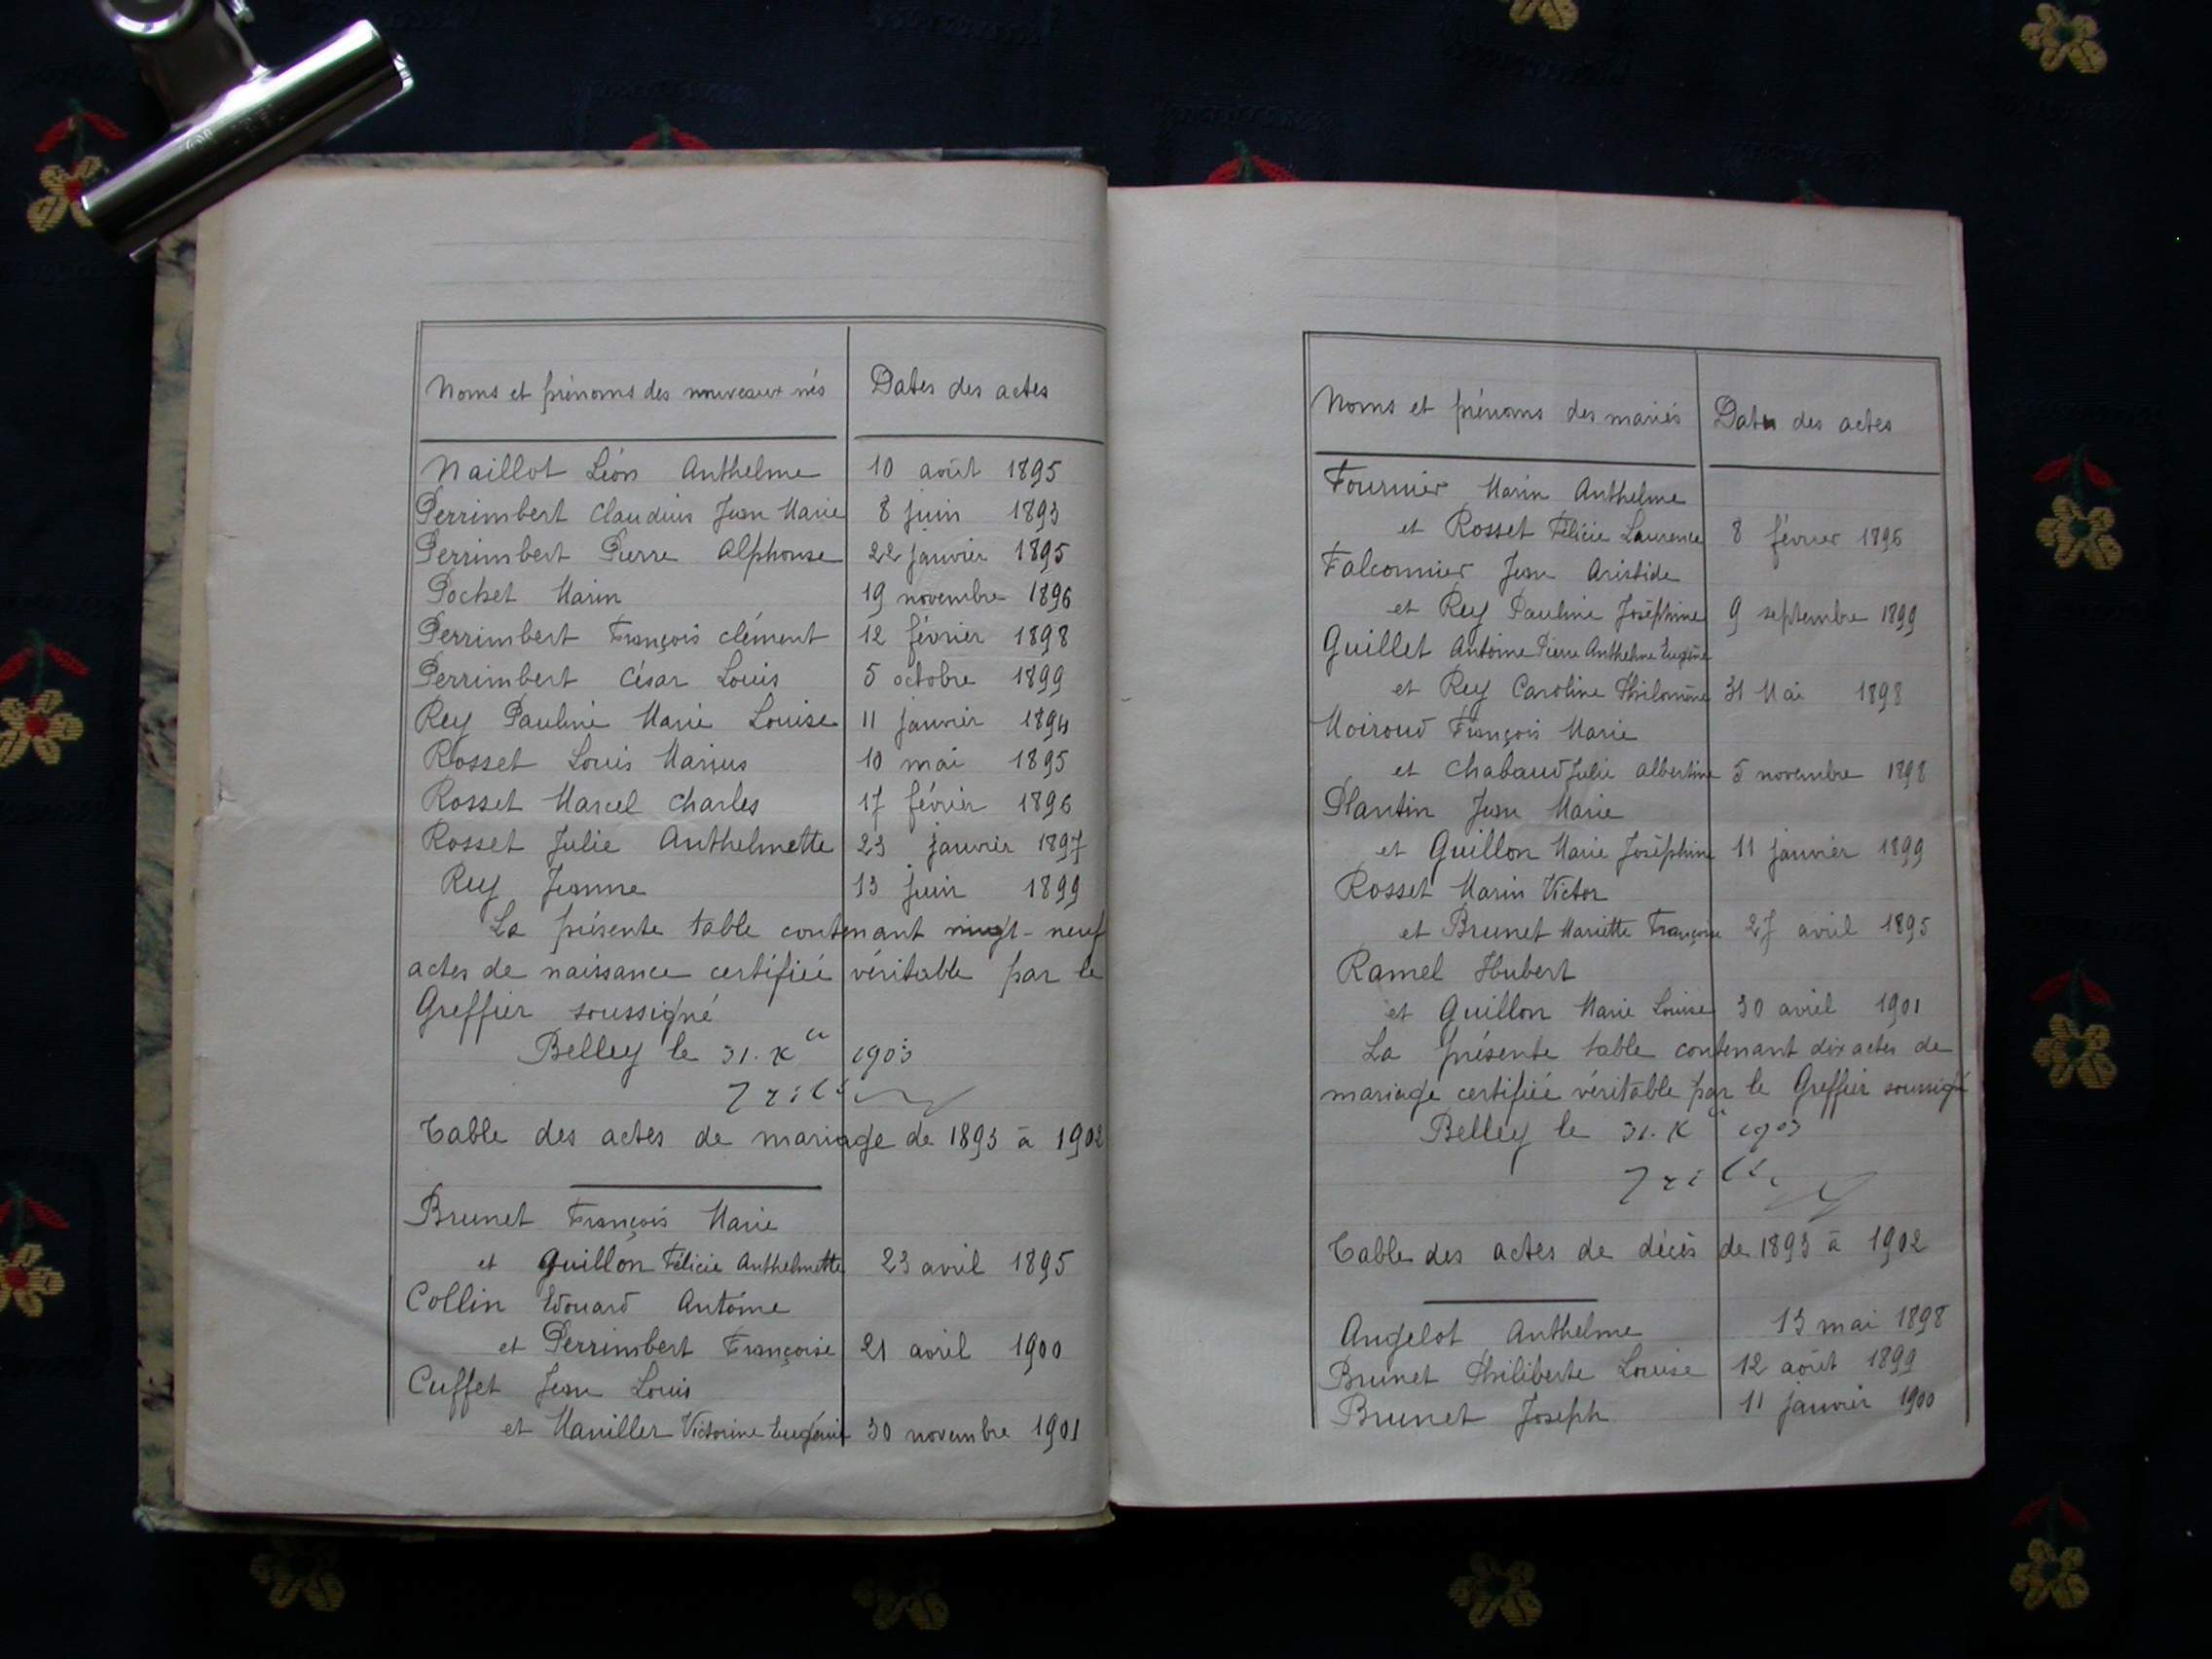 Noms et prénoms des nouveaux nés Dates des actes
Naillot Léon Anthelme 10 août 1895
Perrimbert Claudius Jean Marie 8 juin 1893
Perrimbert Pierre Alphonse 22 janvier 1895
Pochet Marin 19 novembre 1896
Perrimbert François clément 12 février 1898
Perrimbert César Louis 5 octobre 1899
Rey Pauline Marie Louise 11 janvier 1894
Rosset Louis Marius 10 mai 1895
Rosset Marcel Charles 17 février 1896
Rosset Julie Anthelmette 23 janvier 1897
Rey Jeanne 13 juin 1899
La présente table contenant vingt-neuf
actes de naissance certifiée véritable par le
Greffier soussigné
Belley le 31. Xbre 1903
Table des actes de mariage de 1893 à 1902
Brunet François Marie
et Guillon Félicie Anthelmette 23 avril 1895
Collin Edouard Antoine
et Perrimbert Françoise 21 avril 1900
Cuffet Jean Louis
et Maniller Victorine Eugénie 30 novembre 1901
Noms et prénoms des mariés Dates des actes
Fournier Marin Anthelme
et Rosset Félicie Laurence 8 février 1896
Falconnier Jean Aristide
et Rey Pauline Joséphine 9 septembre 1899
Guillet Antoine Pierre Anthelme Eugène
et Rey Caroline Philomène 31 Mai 1898
Moiroud François Marie
et Chabaud Julie Albertine 5 novembre 1898
Plantin Jean Marie
et Guillon Marie Joséphine 11 janvier 1899
Rosset Marin Victor
et Brunet Mariette Françoise 27 avril 1895
Ramel Hubert
et Guillon Marie Louise 30 avril 1901
La présente table contenant dix actes de
mariage certifiée véritable par le Greffier soussigné
Belley le 31. Xbre 1903
Table des actes de décès de 1893 à 1902
Angelot Anthelme 13 mai 1898
Brunet Philiberte Louise 12 août 1899
Brunet Joseph 11 janvier 1900